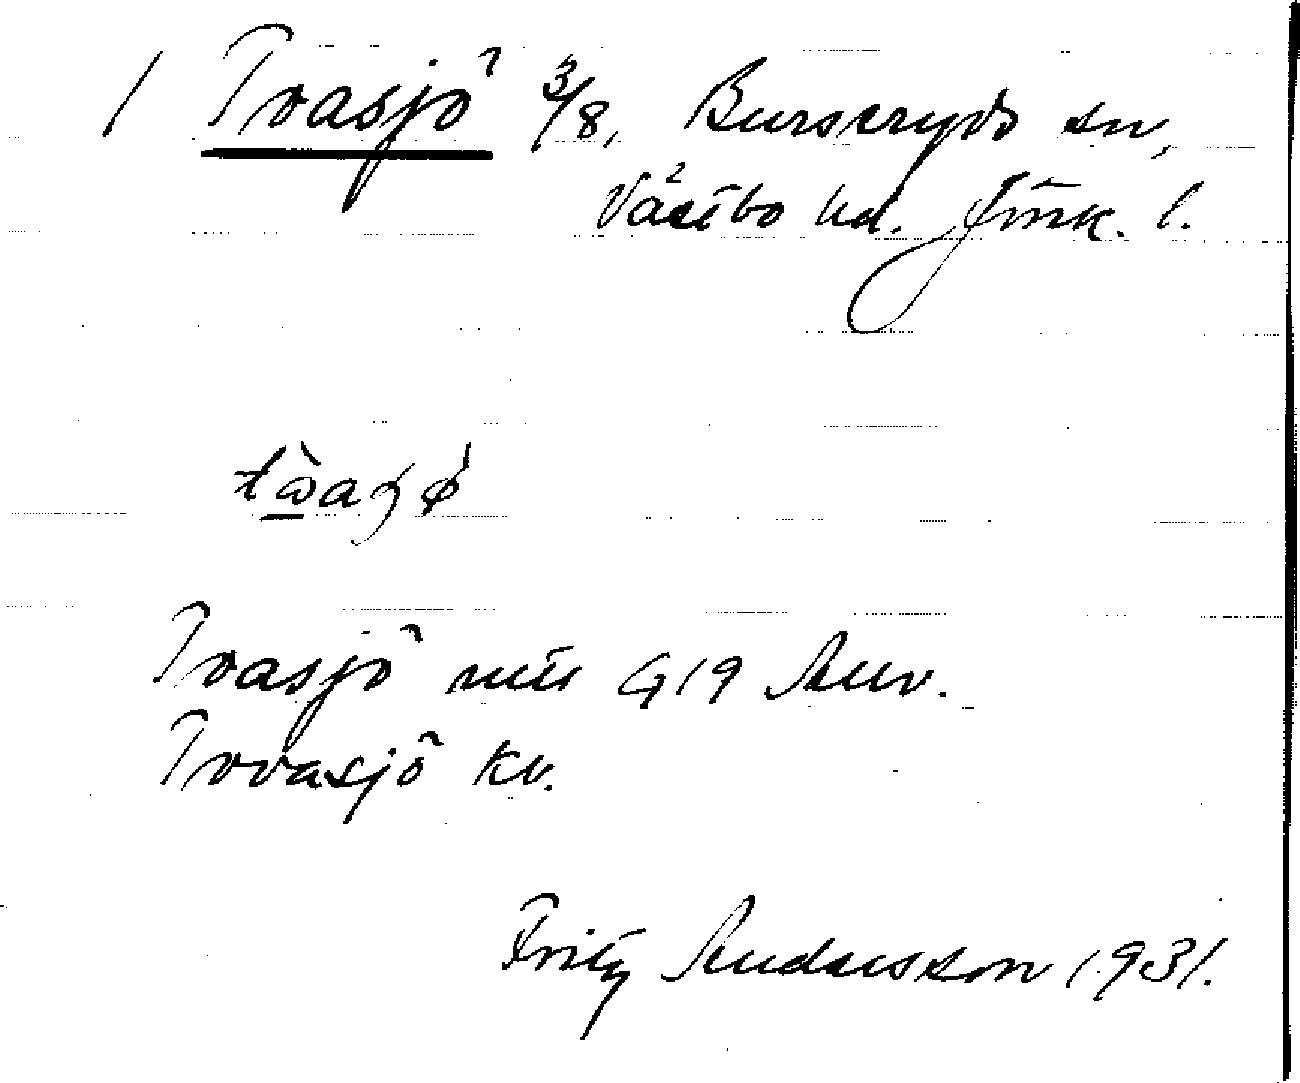 / Tvasjö 3/8, Burseryds sn,
Västbo hd. Jönk. l.
Tvasjö 1419 Auv.
Tvvasjö kv.
Fritz Andersson 1931.